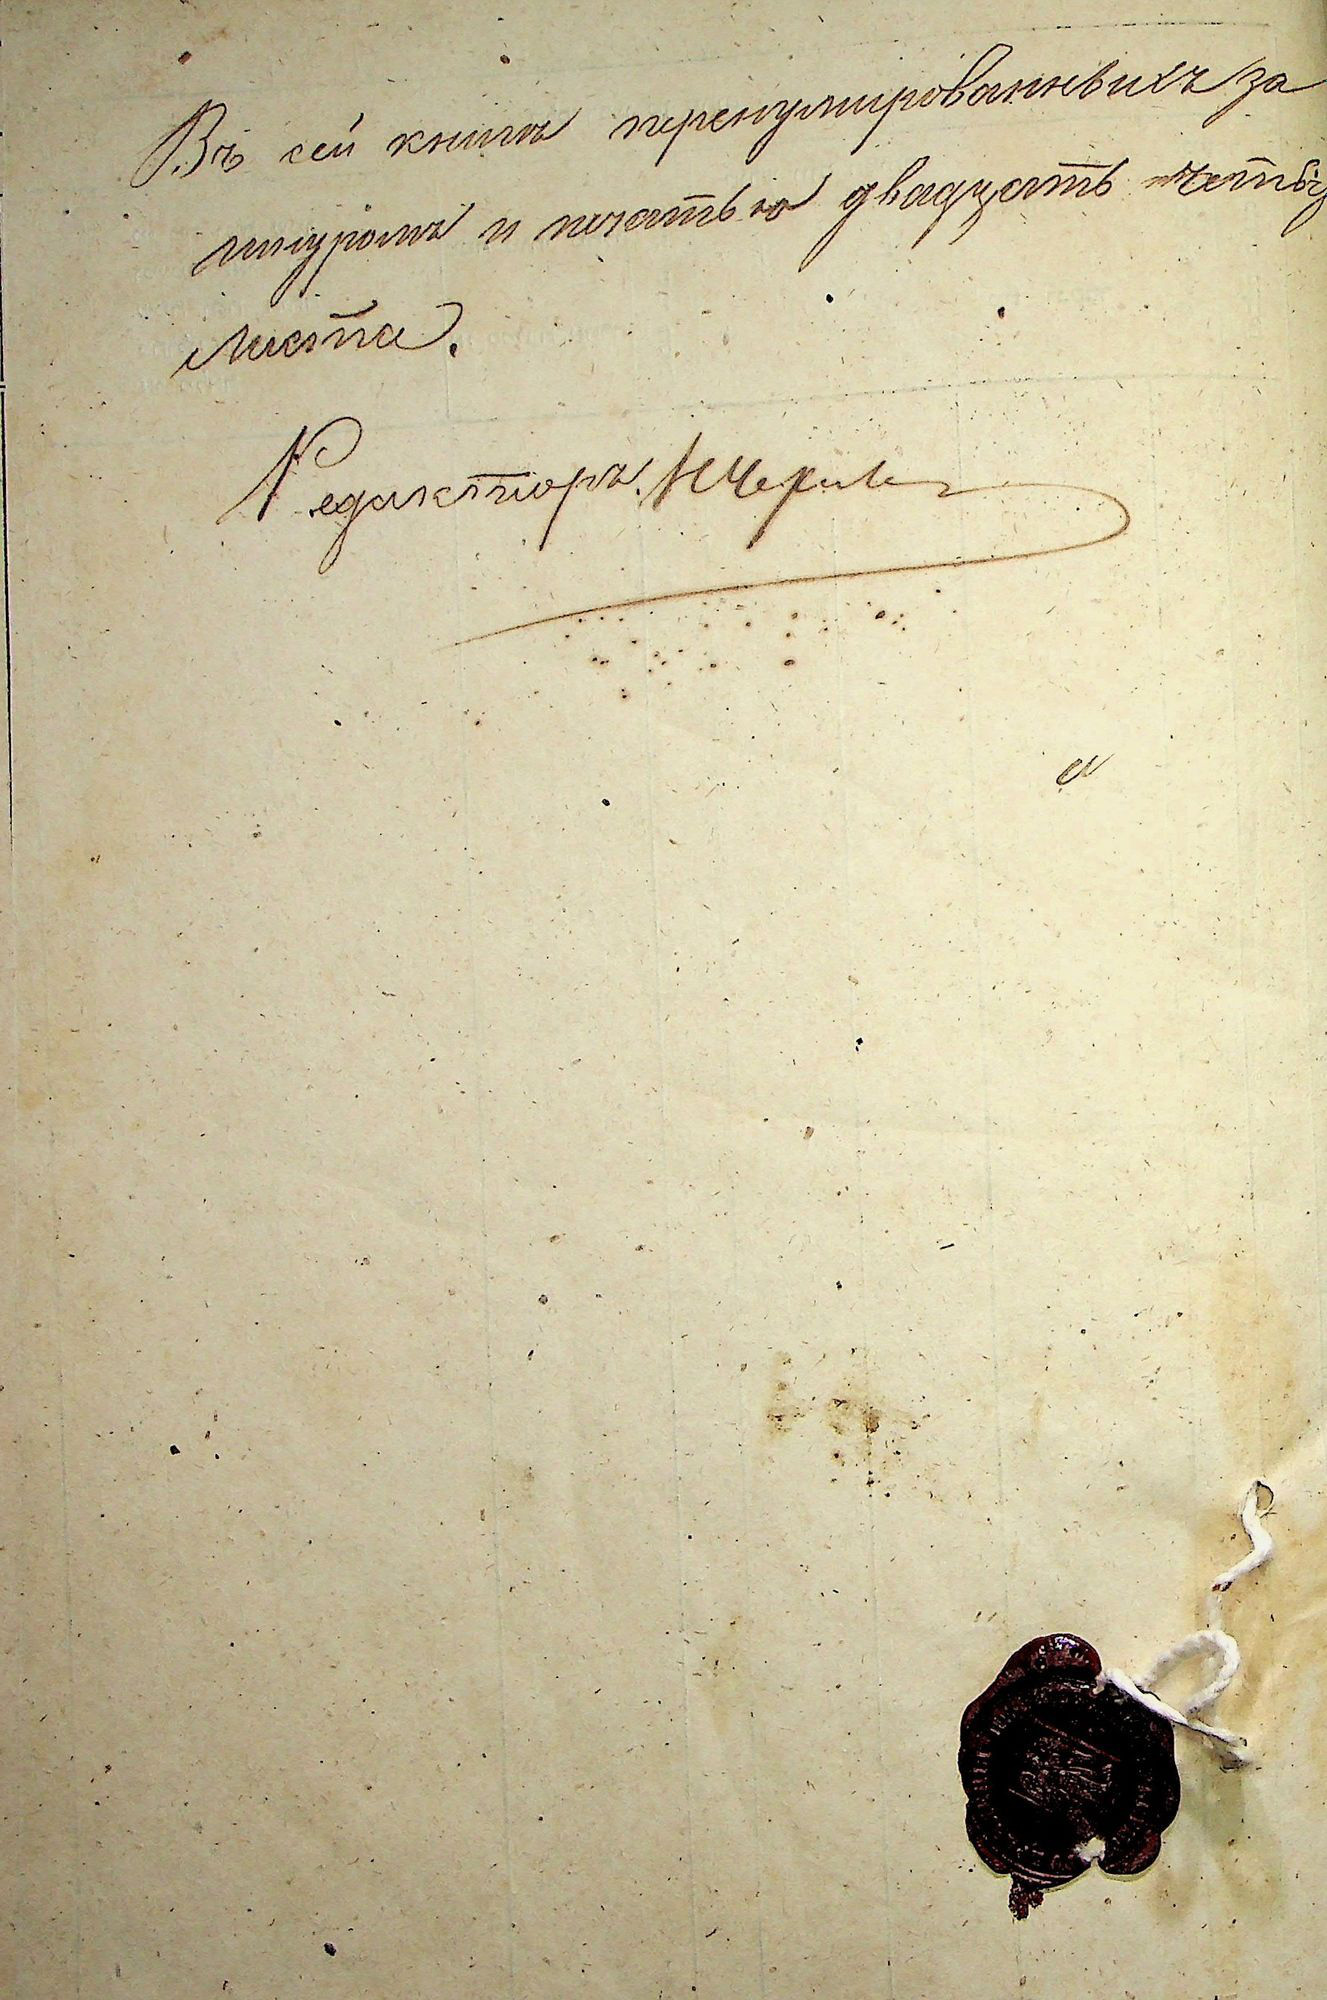 Въ сей книгѣ перенумированныхъ за
шнуромъ и печатью двадцать четы
листа.
Редакторъ